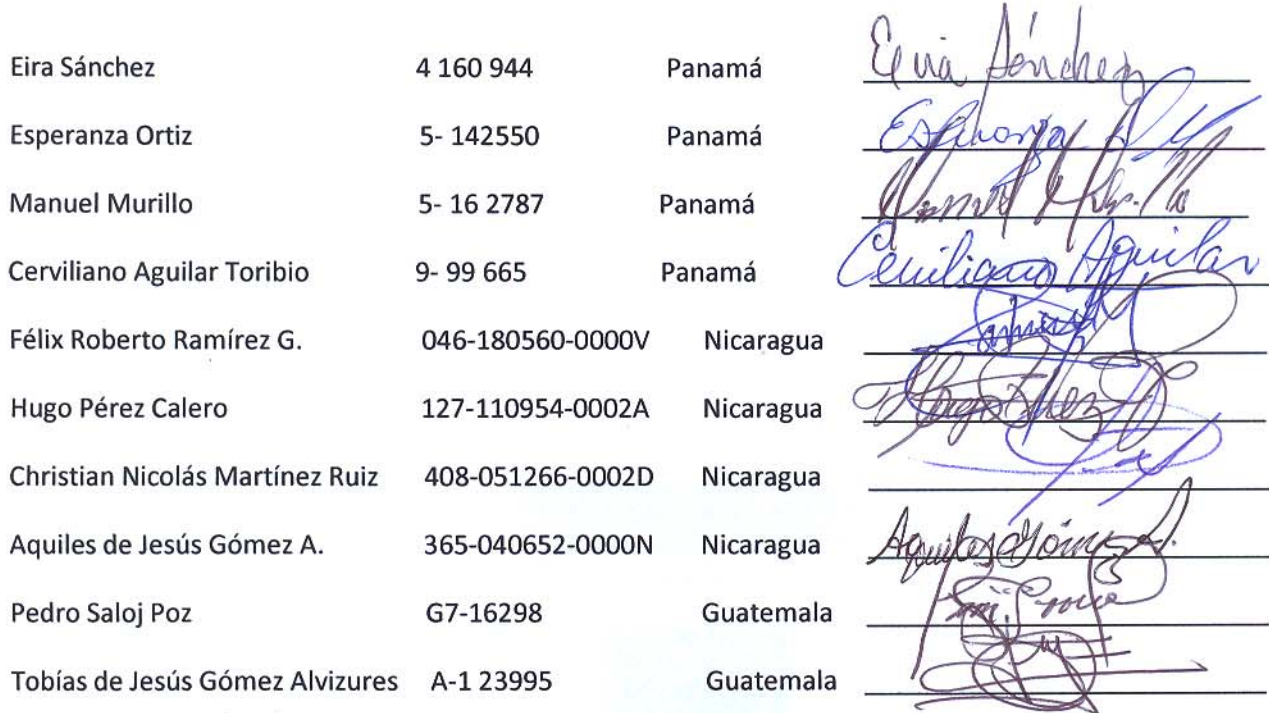 Eira Sánchez 4 160 944 Panamá Eira Sánchez
Esperanza Ortiz 5- 142550 Panamá Esperanza
Manuel Murillo 5- 16 2787 Panamá Manuel Murillo
Cerviliano Aguilar Toribio 9- 99 665 Panamá Cerviliano Aguilar
Félix Roberto Ramírez G. 046-180560-0000V Nicaragua
Hugo Pérez Calero 127-110954-0002A Nicaragua Hugo Pérez
Christian Nicolás Martínez Ruiz 408-051266-0002D Nicaragua
Aquiles de Jesús Gómez A. 365-040652-0000N Nicaragua Aquiles Gómez A.
Pedro Saloj Poz G7-16298 Guatemala
Tobías de Jesús Gómez Alvizures A-1 23995 Guatemala